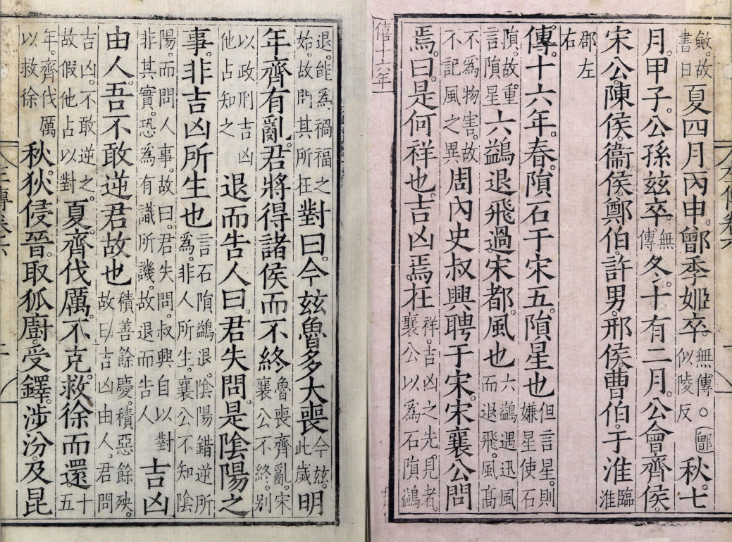 敏。故書曰夏四月丙申。鄫季姬卒。無傳。○鄫似陵反秋七
月。甲子。公孫茲卒。無傳冬。十有二月。公會齊侯
宋公。陳侯衞侯鄭伯。許男。邢侯曹伯。于淮。臨淮
郡左右
傳。十六年。春。隕石于宋五。隕星也但言星則嫌星使石
隕。故重言隕星六鷁退飛過宋都。風也六鷁遇迅風而退飛。風高
不為物害。故不記風之異周內史叔興聘于宋。宋襄公問
焉。曰是何祥也。吉凶焉在祥吉凶之先見者。襄公以為石隕鷁
僖十六年
退。能為禍福之始。故問其所在對曰。今茲魯多大喪今茲。此歲明
年齊有亂。君將得諸侯而不終魯喪齊亂。宋襄公不終。別
以政刑吉凶他占知之退而告人曰。君失問。是陰陽之
事。非吉凶所生也言石隕鷁退。陰陽錯逆所為。非人所生。襄公不知陰
陽而問人事。故曰。君失問。叔興自以對非其實。恐為有識所譏。故退而告人吉凶
由人。吾不敢逆君故也積善餘慶。積惡餘殃。故曰吉凶由人。君問
吉凶。不敢逆之。故假他占以對夏。齊伐厲。不克。救徐而還十五
年。齊伐厲以救徐秋。狄侵晉。取狐廚。受鐸。涉汾。及昆